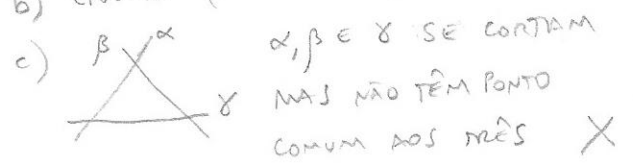 b)
c) β α γ
α, β E γ SE CORTAM
MAS NÃO TÊM PONTO
COMUM AOS TRÊS X